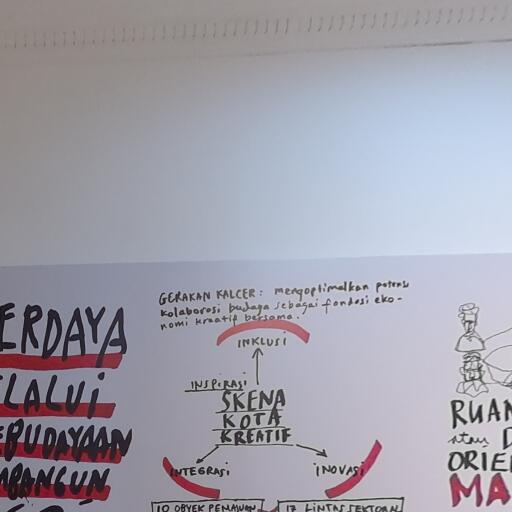 ERDAYA
LALUI
EBUDAYAAN
MBANGUN
GERAKAN KALCER: mengoptimalkan potensi
kolaborasi budaya sebagai fondasi eko-
nomi kreatif bersama.
INKLUSI
INSPIRASI
SKENA
KOTA
KREATIF
INTEGRASI
INOVASI
10 OBYEK PEMAJUAN
17 LINTAS SEKTORAL
RUAN
atau D
ORIE
MA